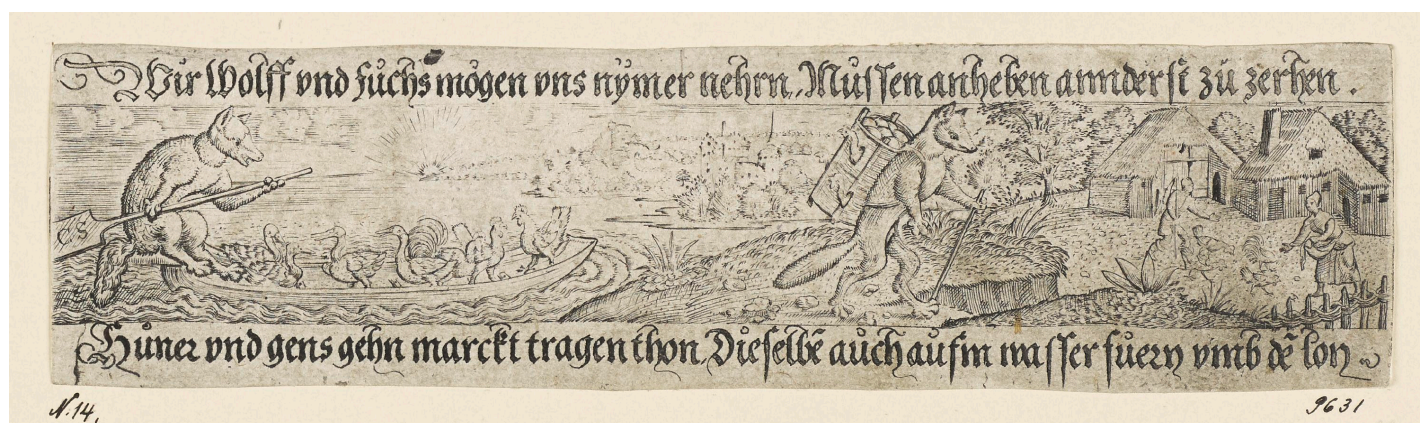 Wir Wolff vnd fůchs mögen vns nÿmer nehrn. Mussen anheben annderst zů zerhen.
CS
Hůner vnd gens gehn marckt tragen thon Dieselbē aůch aufm wasser fůern vmb dē lon
N. 14,
9631